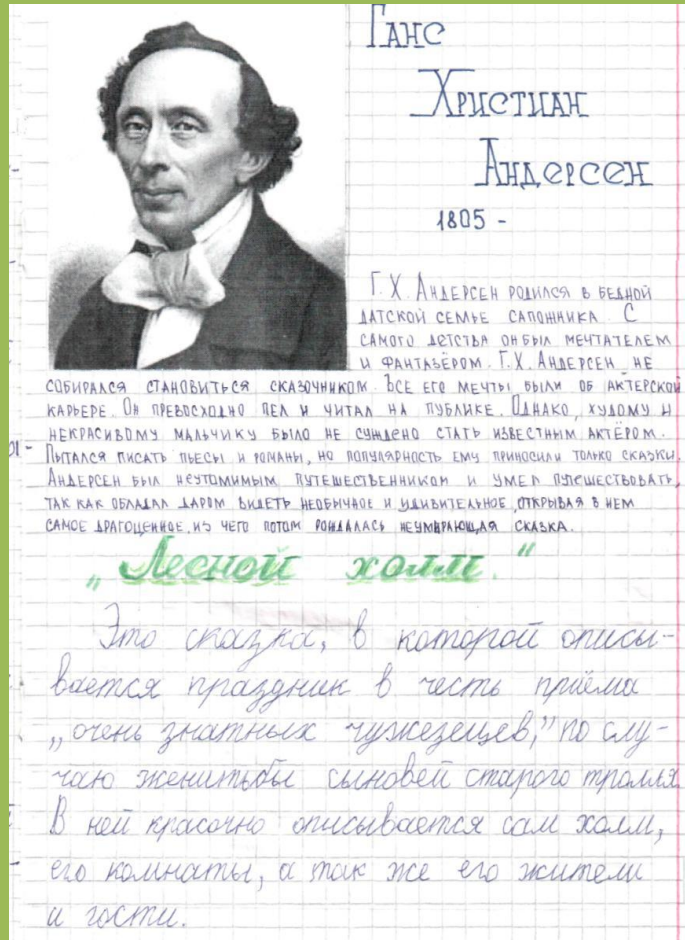 Ганс
Христиан
Андерсен
1805 -
Г. Х. Андерсен родился в бедной
датской семье сапожника. С
самого детства он был мечтателем
и фантазёром. Г. Х. Андерсен не
собирался становиться сказочником. Все его мечты были об актерской
карьере. Он превосходно пел и читал на публике. Однако, худому и
некрасивому мальчику было не суждено стать известным актёром.
Пытался писать пьесы и романы, но популярность ему приносили только сказки.
Андерсен был неутомимым путешественником и умел путешествовать,
так как обладал даром видеть необычное и удивительное, открывая в нем
самое драгоценное, из чего потом рождалась неумирающая сказка.
„Лесной холм."
Это сказка, в которой описы-
вается праздник в честь приёма
„очень знатных чужеземцев," по слу-
чаю женитьбы сыновей старого тролля.
В ней красочно описывается сам холм,
его комнаты, а так же его жители
и гости.